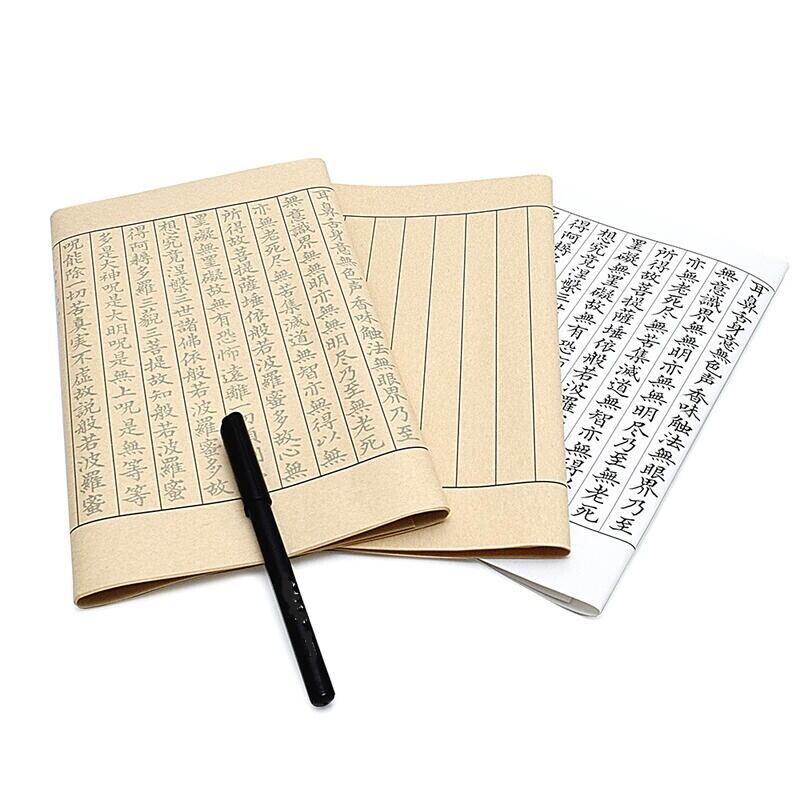 耳鼻舌身意無色声香味触法無眼界乃至
無意識界無無明亦無無明尽乃至無老死
亦無老死尽無苦集滅道無智亦無得以無
所得故菩提薩埵依般若波羅蜜多故心無
罣礙無罣礙故無有恐怖遠離
想究竟涅槃三世諸佛依般若波羅
得阿耨多羅三藐三菩提故知般若波羅蜜
多是大神呪是大明呪是無上呪是無等等
呪能除一切苦真実不虚故説般若波羅蜜
耳鼻舌身意無色声香味触法無眼界乃至
無意識界無無明亦無無明尽乃至無老死
亦無老死尽無苦集滅道無智亦無得
所得故菩提薩埵依般若波羅
罣礙無罣礙故無有恐
想究竟涅槃三世
得阿耨多羅三